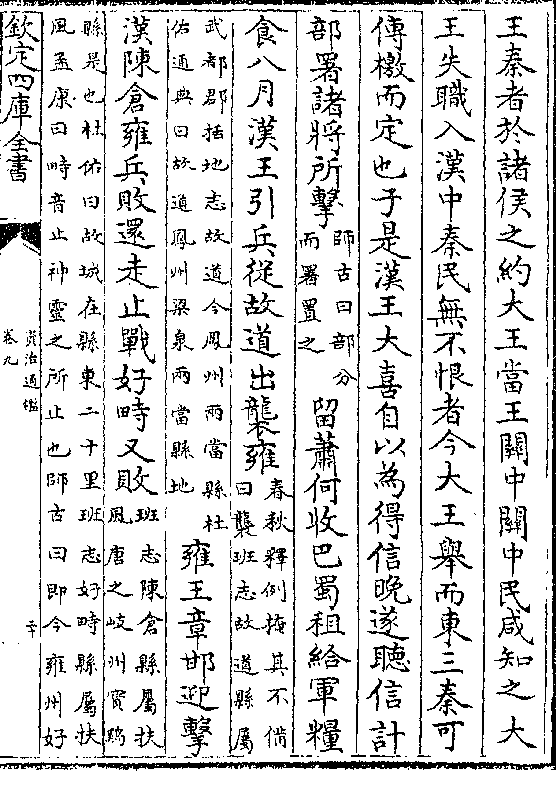 王秦者於諸侯之約大王當王關中關中民咸知之大
王失職入漢中秦民無不恨者今大王舉而東三秦可
傳檄而定也于是漢王大喜自以為得信晚遂聽信計
部署諸將所擊師古曰部分而署置之留蕭何收巴蜀租給軍糧
食八月漢王引兵從故道出襲雍春秋釋例掩其不備曰襲班志故道縣屬
武都郡括地志故道今鳳州兩當縣杜佑通典曰故道鳳州梁泉兩當縣地雍王章邯迎擊
漢陳倉雍兵敗還走止戰好畤又敗班志陳倉縣屬扶風唐之岐州寶雞
縣是也杜佑曰故城在縣東二十里班志好畤縣屬扶風孟康曰畤音止神靈之所止也師古曰即今雍州好
欽定四庫全書
資治通鑑
卷九